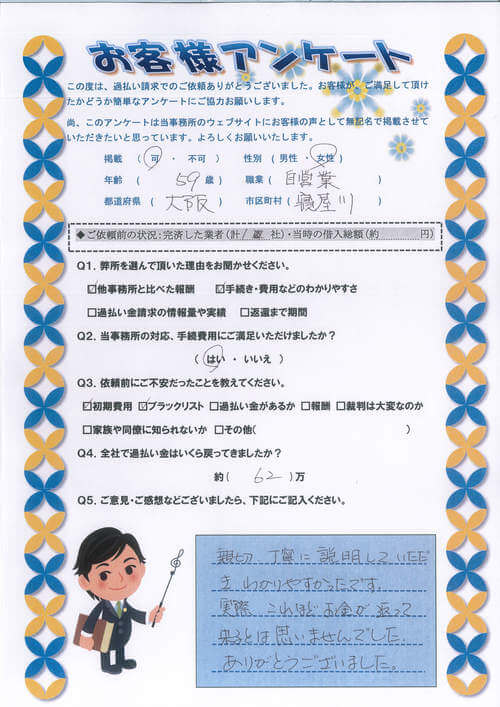 お客様アンケート
この度は、過払い請求でのご依頼ありがとうございました。お客様が、ご満足して頂け
たかどうか簡単なアンケートにご協力お願いします。
尚、このアンケートは当事務所のウェブサイトにお客様の声として無記名で掲載させて
いただきたいと思っています。よろしくお願いいたします。
掲載 ( 可 ・ 不可 ) 性別 ( 男性 ・ 女性 )
年齢 ( 59 歳 ) 職業 ( 自営業 )
都道府県 ( 大阪 ) 市区町村 ( 寝屋川 )
◆ご依頼前の状況:完済した業者(計/ 社)・当時の借入総額(約 円)
Q1. 弊所を選んで頂いた理由をお聞かせください。
☑他事務所と比べた報酬 ☑手続き・費用などのわかりやすさ
□過払い金請求の情報量や実績 □返還まで期間
Q2. 当事務所の対応、手続費用にご満足いただけましたか?
( はい ・ いいえ )
Q3. 依頼前にご不安だったことを教えてください。
☑初期費用 ☑ブラックリスト □過払い金があるか □報酬 □裁判は大変なのか
□家族や同僚に知られないか □その他( )
Q4. 全社で過払い金はいくら戻ってきましたか?
約( 62 )万
Q5. ご意見・ご感想などございましたら、下記にご記入ください。
親切 丁寧に説明していただ
きわかりやすかったです。
実際 これほどお金が返って
来るとは思いませんでした。
ありがとうございました。